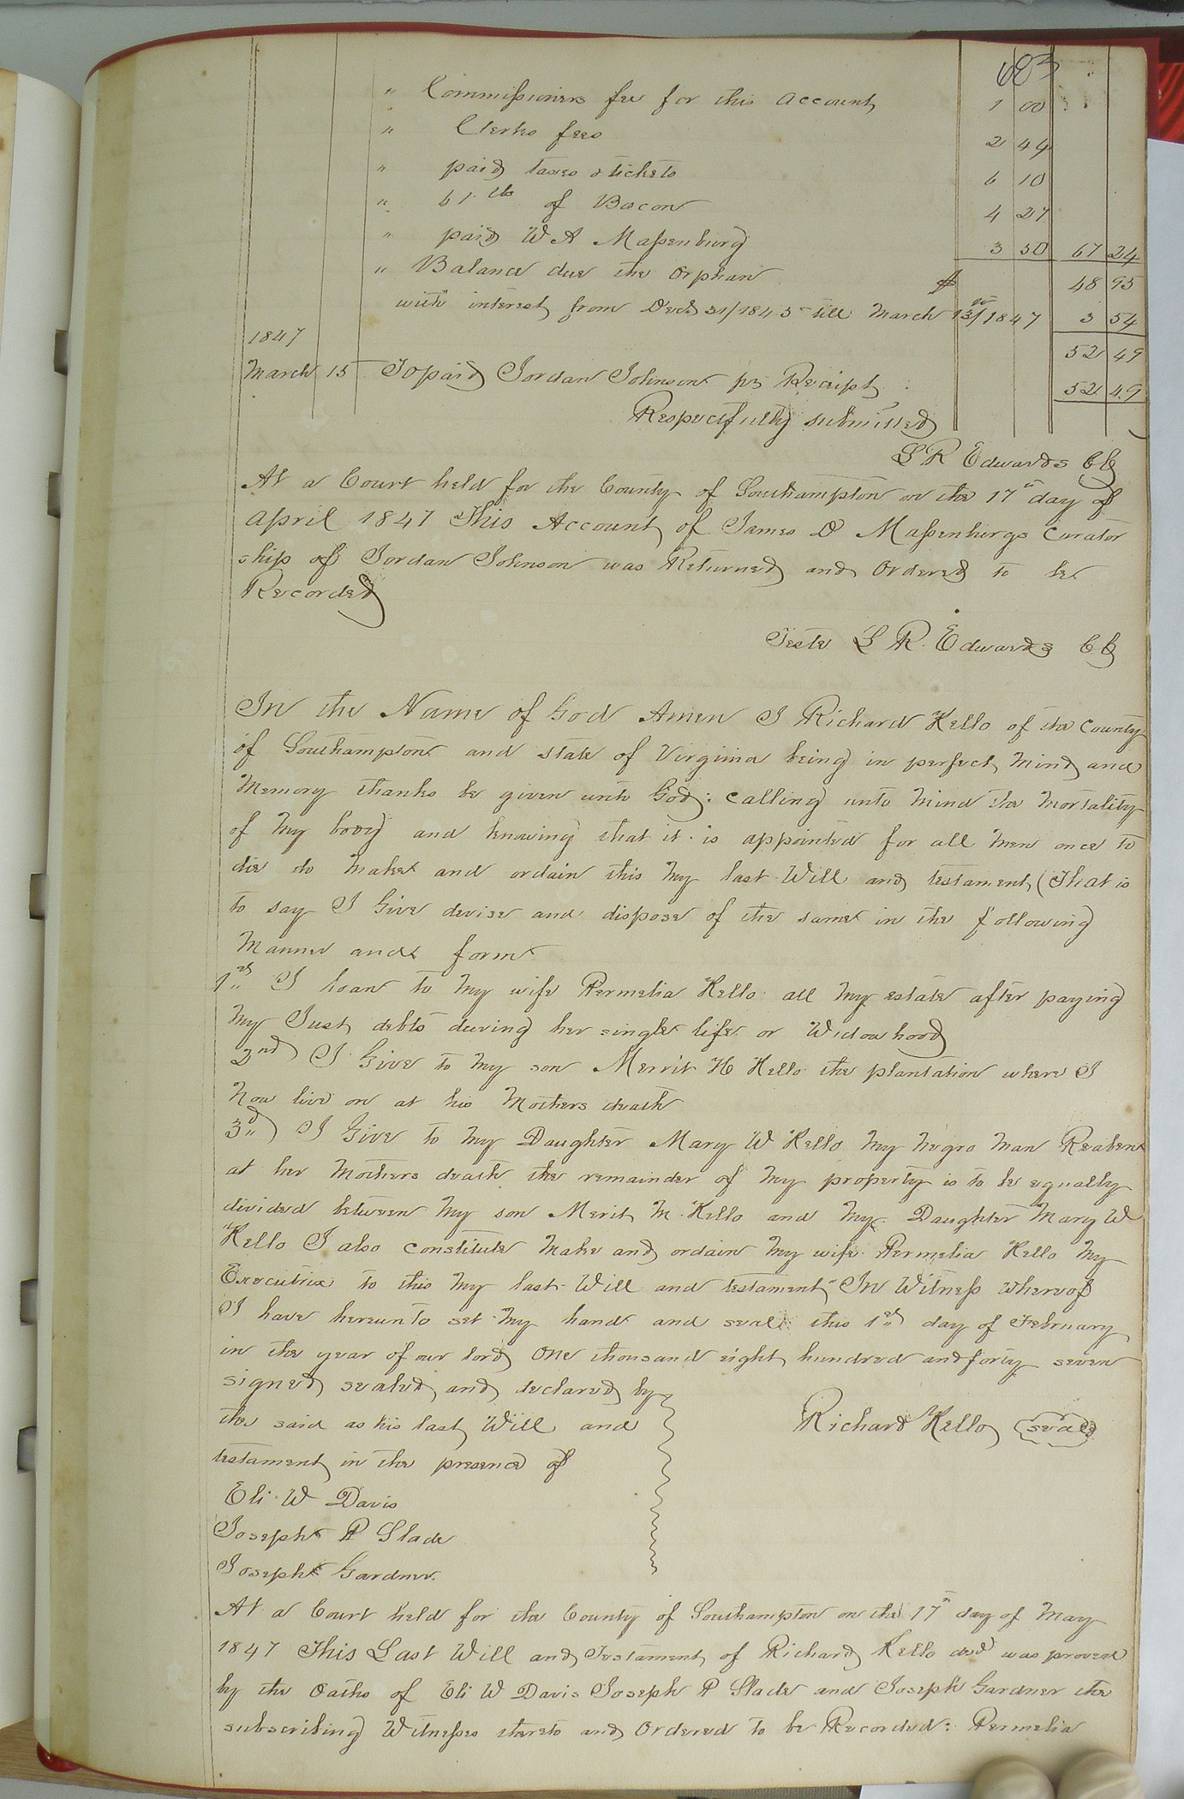 603
" Commissioners fee for this account 1 00
" Clerks fees 2 44
" paid taxes & tickets 6 10
" 61 lb of Bacon 4 27
" paid W A Massenburg 3 50 67 24
" Balance due the Orphan $ 48 95
with interest from Decr 31/1845 till March 15/1847 3 54
1847 52 49
March 15 To paid Jordan Johnson pr Receipt 52 49
Respectfully submitted
L R Edwards CC
At a Court held for the County of Southampton on the 17th day of
April 1847 This Account of James D Massenburgs Curator
ship of Jordan Johnson was Returned and Ordered to be
Recorded
Teste L R Edwards CC
In the Name of God Amen I Richard Kello of the County
of Southampton and state of Virginia being in perfect mind and
Memory thanks be given unto God: calling unto mind the mortality
of my body and knowing that it is appointed for all men once to
die do make and ordain this my last Will and testament (That is
to say I Give devise and dispose of the same in the following
Manner and form
1st I loan to my wife Permelia Kello all my estate after paying
my Just debts during her single life or Widowhood
2nd) I Give to my son Merrit H Kello the plantation where I
Now live on at his Mothers death
3d) I Give to my Daughter Mary W Kello my negro man Reaben
at her mothers death the remainder of my property is to be equally
divided between my son Merit M Kello and my Daughter Mary W
Kello I also constitute make and ordain my wife Permelia Kello my
Executrix to this my last Will and testament In Witness whereof
I have hereunto set my hand and seal this 1st day of February
in the year of our lord One thousand eight hundred and forty seven
signed sealed and declared by
the said as his last Will and Richard Kello (seal)
testament in the presence of
Eli W Davis
Joseph P Slade
Joseph Gardner
At a Court held for the County of Southampton on the 17th day of May
1847 This Last Will and Testament of Richard Kello decd was proved
by the Oaths of Eli W Davis Joseph P Slade and Joseph Gardner the
subscribing Witnesses thereto and Ordered to be Recorded: Permelia